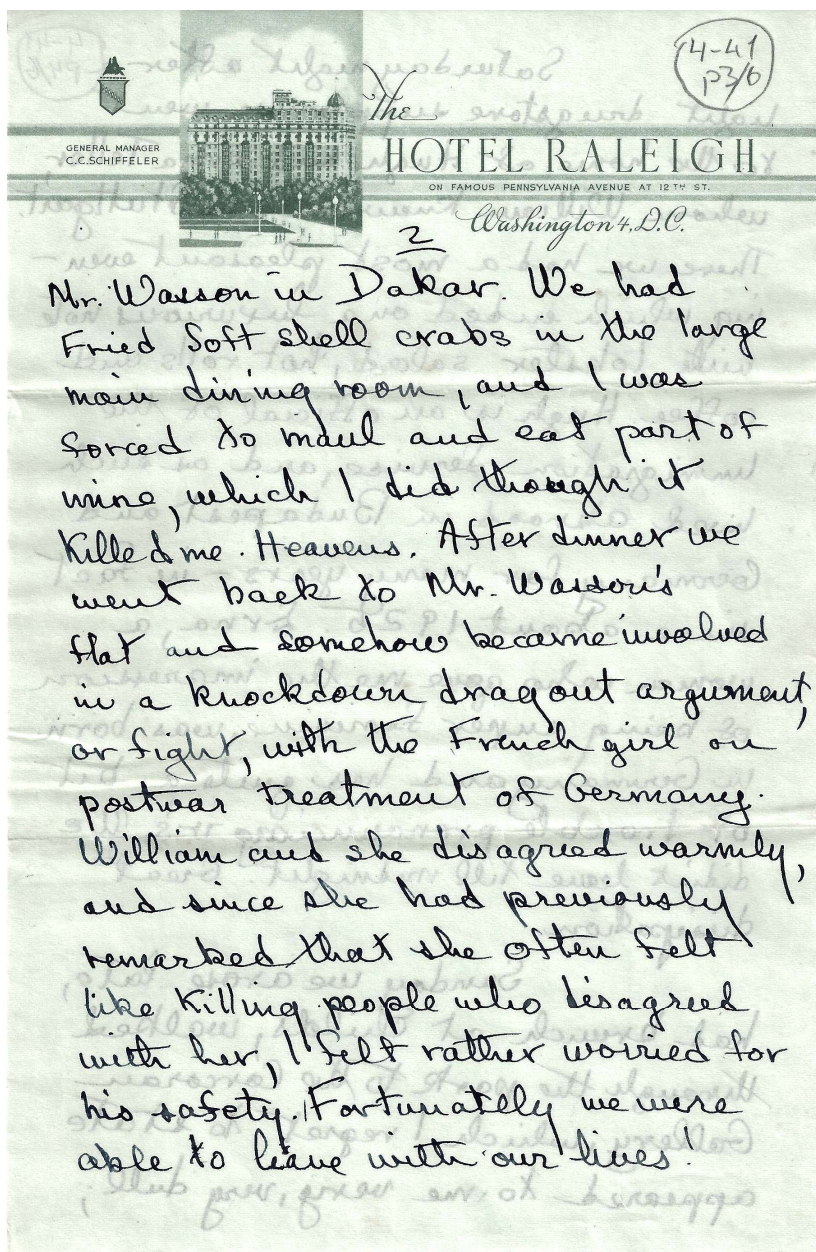 4-41
p3/6
The
HOTEL RALEIGH
GENERAL MANAGER
C.C. SCHIFFELER
ON FAMOUS PENNSYLVANIA AVENUE AT 12TH ST.
Washington 4, D.C.
2
Mr. Wasson in Dakar. We had
Fried Soft shell crabs in the large
main dining room, and I was
forced to maul and eat part of
mine, which I did though it
Killed me. Heavens. After dinner we
went back to Mr. Wasson's
flat and somehow became involved
in a knockdown dragout argument,
or fight, with the French girl on
postwar treatment of Germany.
William and she disagreed warmly,
and since she had previously
remarked that she often felt
like Killing people who disagreed
with her, I felt rather worried for
his safety. Fortunately we were
able to leave with our lives!